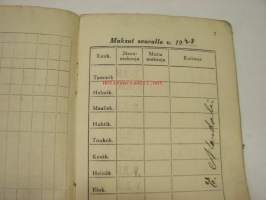 Maksut seuralle v. 19
Kuuk.
Jäsen-
maksuja
Muita
maksuja
Kuittaus
Tammik.
Helmik.
Maalisk.
Huhtik.
Toukok.
Kesäk.
Heinäk.
Elok.